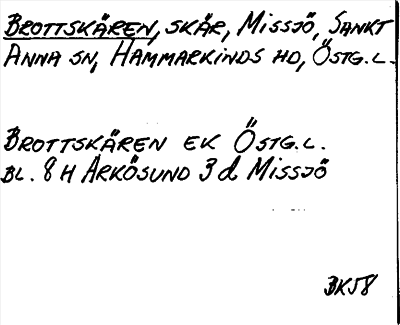 BROTTSKÄREN, SKÄR, MISSJÖ, SANKT
ANNA SN, HAMMARKINDS HD, ÖSTG.L.
BROTTSKÄREN EK ÖSTG.L.
BL. 8 H ARKÖSUND 3 d MISSJÖ
BK58